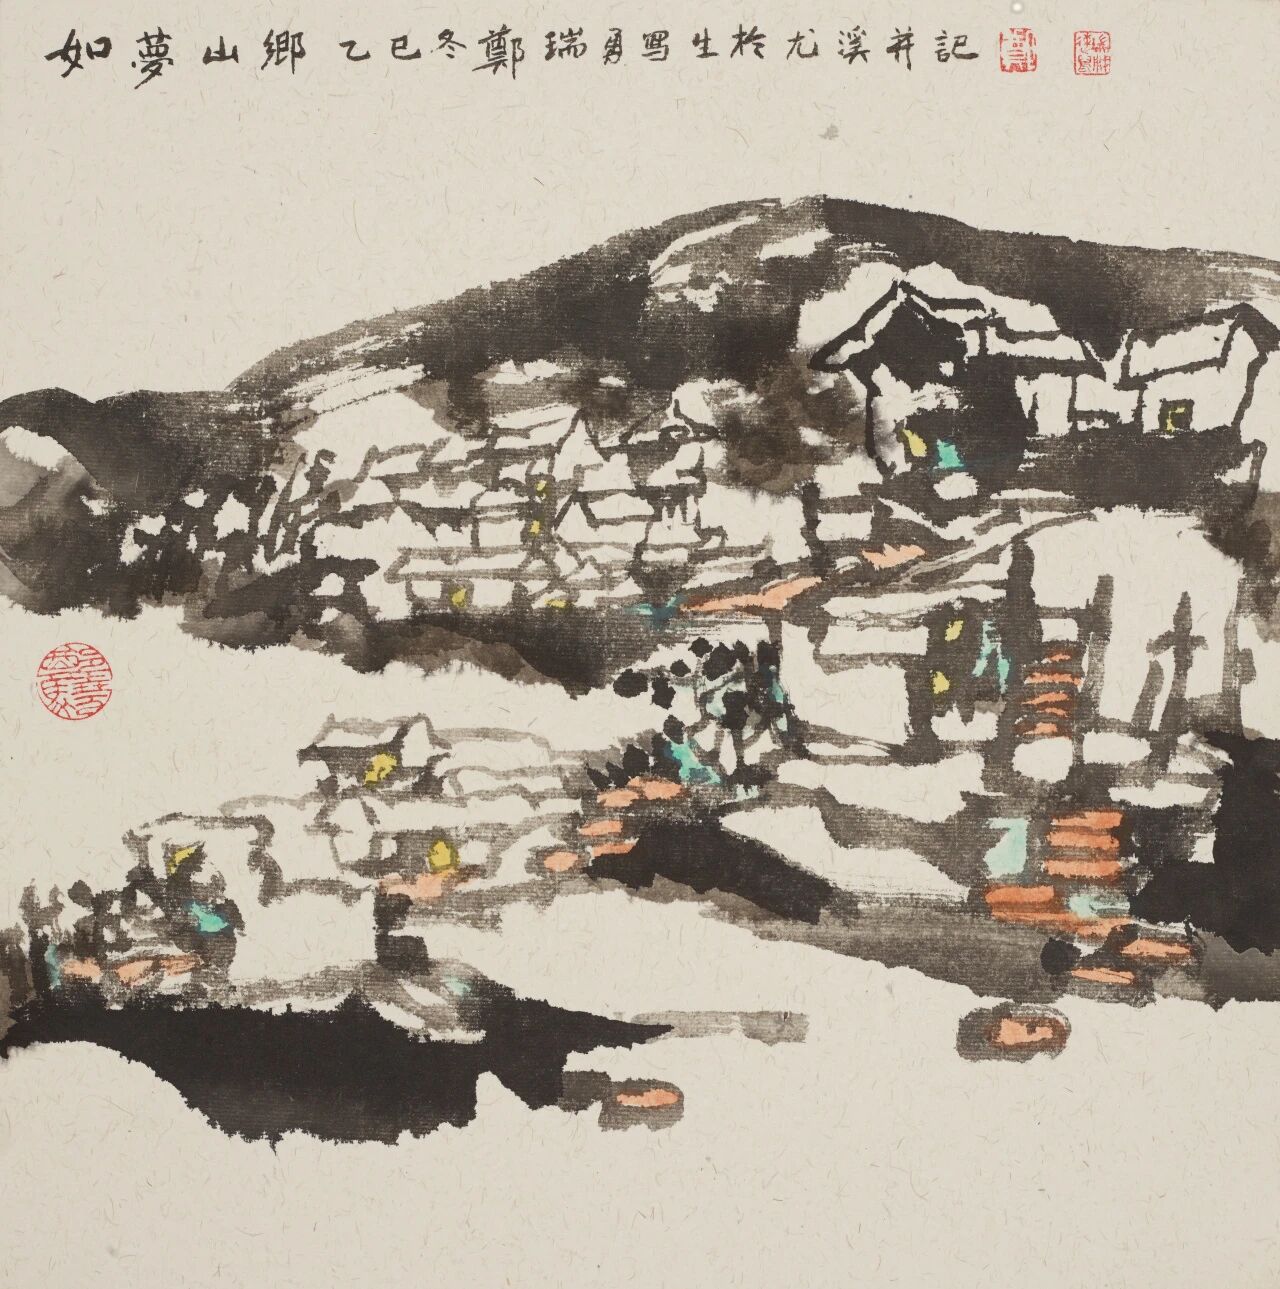 如夢山鄉 乙巳冬鄭瑞勇寫生於尤溪并記